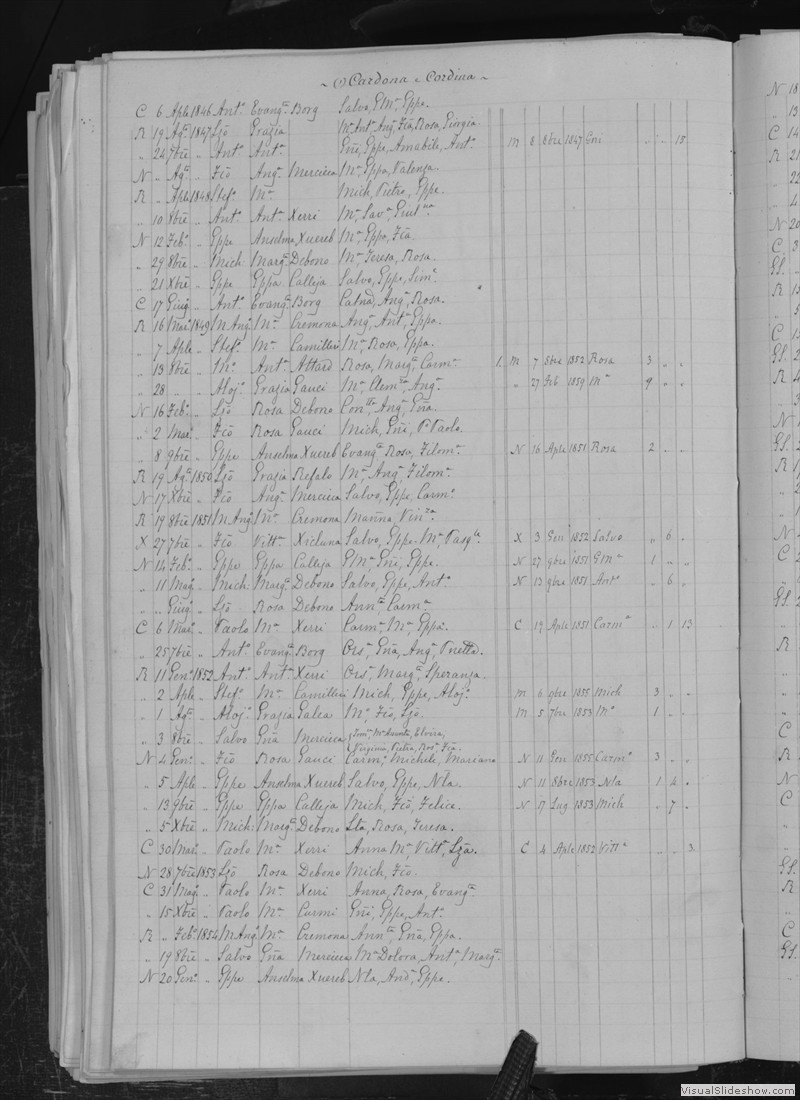 ~ (1) Cardona e Cordina ~
C 6 Aple 1846 Antº Evangª Borg Salvo, GMª, Eppa.
R 19 Agº 1847 Ljō Grazia Mª Antª Angª, Fċa, Rosa, Giorgia
„ 24 7bre „ Antº Antª Gñi, Eppe, Amabile, Antº M 8 8bre 1847 Gñi „ „ 15
N „ Agº „ Fċō Angª Mercieca Mª, Eppa, Valenza.
R „ Aple 1848 Stefº Mª Mich, Pietro, Eppe.
„ 10 8bre „ Antº Antª Xerri Mª, Savª,
N 12 Febº „ Eppe Anselma Xuereb Mª, Eppa, Fċa.
„ 29 8bre „ Mich Margª Debono Mª, Teresa, Rosa.
„ 21 Xbre „ Eppe Eppa Calleja Salvo, Eppe, Simº.
C 17 Giugº „ Antº Evangª Borg Catña, Angª, Rosa.
R 16 Marº 1849 M Angº Mª Cremona Angº, Antº, Eppa.
„ 7 Aple „ Stefº Mª Camilleri Mª, Rosa, Eppa.
„ 13 8bre „ Thº Antª Attard Rosa, Margª, Carmª. 1. M 7 8bre 1852 Rosa 3 „ „
„ 28 „ „ Alojº Grazia Gauci Mª, Clemza, Angª. „ 27 Feb 1859 Mª 9 „ „
N 16 Febº „ Ljō Rosa Debono Conttª, Angª, Gña.
„ 2 Marº „ Fċō Rosa Gauci Mich, Gñi, Pº Paolo.
„ 8 9bre „ Eppe Anselma Xuereb Evangª, Rosa, Filomª. N 16 Aple 1851 Rosa 2 „ „
R 19 Agº 1850 Ljō Grazia Refalo Mª, Angª, Filomª.
N 17 Xbre „ Fċō Angª Mercieca Salvo, Eppe, Carmº.
R 19 8bre 1851 M Angº Mª Cremona Marña, Vinza.
X 27 7bre „ Fċō Vittª Xicluna Salvo, Eppe Mª, Pasqle. X 3 Gen 1852 Salvo „ 6 „
N 14 Febº „ Eppe Eppa Calleja GMª, Gñi, Eppe. N 27 9bre 1851 GMª 1 „ „
„ 11 Magº „ Mich Margª Debono Salvo, Eppe, Antº N 13 9bre 1851 Antº „ 6 „
„ „ Giugº „ Ljō Rosa Debono Annª, Carmª
C 6 Marº „ Paolo Mª Xerri Carmª, Mª, Eppa. C 19 Aple 1851 Carmª „ 1 13
„ 25 7bre „ Antº Evangª Borg Orsª, Gña, Angª,
R 11 Genº 1852 Antº Antª Xerri Orsª, Margª, Speranza.
„ 2 Aple „ Stefº Mª Camilleri Mich, Eppe, Alojº. M 6 9bre 1855 Mich 3 „ „
„ 1 Agº „ Alojº Grazia Galea Mº, Fċō, Ljō. M 5 7bre 1853 Mº 1 „ „
„ 3 8bre „ Salvo Gña Mercieca Mª Assunta, Elvira,
Virginia, Pietra, Rosª, Fċa.
N 4 Genº „ Fċō Rosa Gauci Carmº, Michele, Mariano N 11 Gen 1855 Carmº 3 „ „
„ 5 Aple „ Eppe Anselma Xuereb Salvo, Eppe, Nla. N 11 8bre 1853 Nla 1 4 „
„ 13 9bre „ Eppe Eppa Calleja Mich, Fċō, Felice. N 17 Lug 1853 Mich „ 7 „
„ 5 Xbre „ Mich Margª Debono Lta, Rosa, Teresa.
C 30 Marº „ Paolo Mª Xerri Anna Mª, Vittª, Ljża. C 4 Aple 1852 Vittª „ „ 3
N 28 7bre 1853 Ljō Rosa Debono Mich, Fċō.
C 31 Magº „ Paolo Mª Xerri Anna, Rosa, Evangª.
„ 15 Xbre „ Paolo Mª Carmi Gñi, Eppe, Antº.
R „ Febº 1854 M Angº Mª Cremona Annª, Gña, Eppa.
„ 19 8bre „ Salvo Gña Mercieca Mª Dolora, Antª, Margª.
N 20 Genº „ Eppe Anselma Xuereb Nla, Andª, Eppa.
VisualSlideshow.com